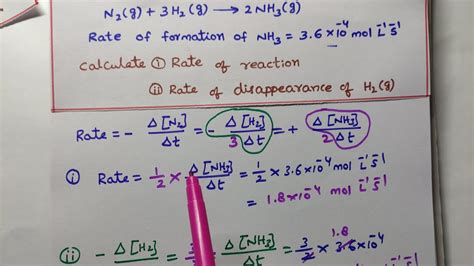 N₂(g) + 3H₂(g) ⟶ 2NH₃(g)
Rate of formation of NH₃ = 3.6 × 10⁻⁴ mol L⁻¹S⁻¹
calculate ① Rate of reaction
ⓘⓘ Rate of disappearance of H₂(g)
Rate = - Δ[N₂]/Δt = - Δ[H₂]/3Δt = + Δ[NH₃]/2Δt
ⓘ Rate = 1/2 × Δ[NH₃]/Δt = 1/2 × 3.6×10⁻⁴ mol L⁻¹S⁻¹
= 1.8×10⁻⁴ mol L⁻¹S⁻¹
ⓘⓘ - Δ[H₂]/ = 3/ Δ[NH₃]/Δt = 3/2 × 3.6×10⁻⁴ 1.8